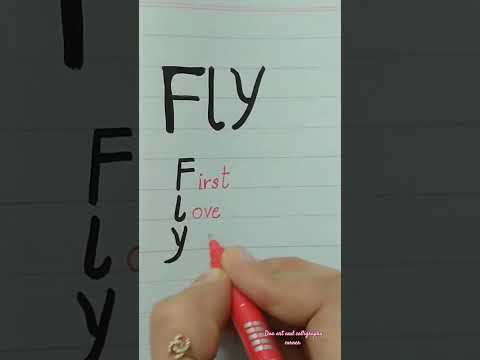 Fly
First
love
y
Dua art and calligraphy
corner